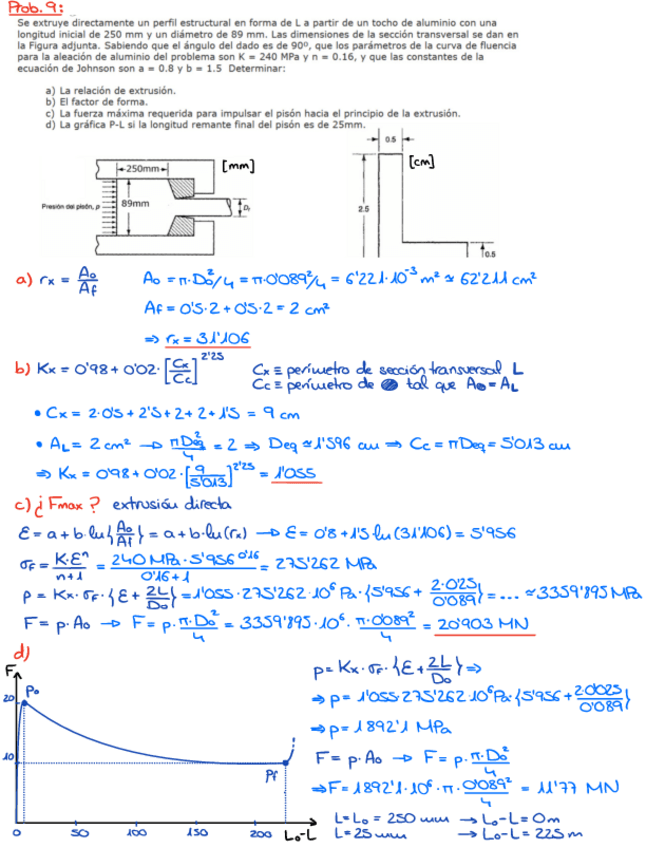 Prob. 9:
Se extruye directamente un perfil estructural en forma de L a partir de un tocho de aluminio con una
longitud inicial de 250 mm y un diámetro de 89 mm. Las dimensiones de la sección transversal se dan en
la Figura adjunta. Sabiendo que el ángulo del dado es de 90º, que los parámetros de la curva de fluencia
para la aleación de aluminio del problema son K = 240 MPa y n = 0.16, y que las constantes de la
ecuación de Johnson son a = 0.8 y b = 1.5 Determinar:
a) La relación de extrusión.
b) El factor de forma.
c) La fuerza máxima requerida para impulsar el pisón hacia el principio de la extrusión.
d) La gráfica P-L si la longitud remante final del pisón es de 25mm.
250mm
[mm]
Presión del pisón, p
89mm
Df
0.5
[cm]
2.5
0.5
a) rx = Ao/Af
Ao = π·Do²/4 = π·0'089²/4 = 6'221·10⁻³ m² ≃ 62'211 cm²
Af = 0'5·2 + 0'5·2 = 2 cm²
⇒ rx = 31'106
b) Kx = 0'98 + 0'02·[Cx/Cc]^2'25
Cx ≡ perímetro de sección transversal L
Cc ≡ perímetro de ● tal que A● = AL
• Cx = 2·0'5 + 2'5 + 2 + 2 + 1'5 = 9 cm
• AL = 2 cm² → πDeq²/4 = 2 ⇒ Deq ≃ 1'596 cm ⇒ Cc = πDeq = 5'013 cm
⇒ Kx = 0'98 + 0'02·[9/5'013]^2'25 = 1'055
c) ¿Fmax? extrusión directa
Ɛ = a + b·ln{Ao/Af} = a + b·ln(rx) → Ɛ = 0'8 + 1'5 ln(31'106) = 5'956
σF = K·Ɛⁿ/n+1 = 240 MPa·5'956^0'16/0'16+1 = 275'262 MPa
p = Kx·σF·{Ɛ + 2L/Do} = 1'055·275'262·10⁶ Pa·{5'956 + 2·0'25/0'089} = ... ≃ 3359'895 MPa
F = p·Ao → F = p·π·Do²/4 = 3359'895·10⁶·π·0'089²/4 = 20'903 MN
d)
F
20
10
Po
Pf
0
50
100
150
200
Lo-L
p = Kx·σF·{Ɛ + 2L/Do} ⇒
⇒ p = 1'055·275'262·10⁶ Pa·{5'956 + 2·0'025/0'089}
⇒ p = 1892'1 MPa
F = p·Ao → F = p·π·Do²/4
⇒ F = 1892'1·10⁶·π·0'089²/4 = 11'77 MN
L = Lo = 250 mm → Lo-L = 0m
L = 25 mm → Lo-L = 225 m